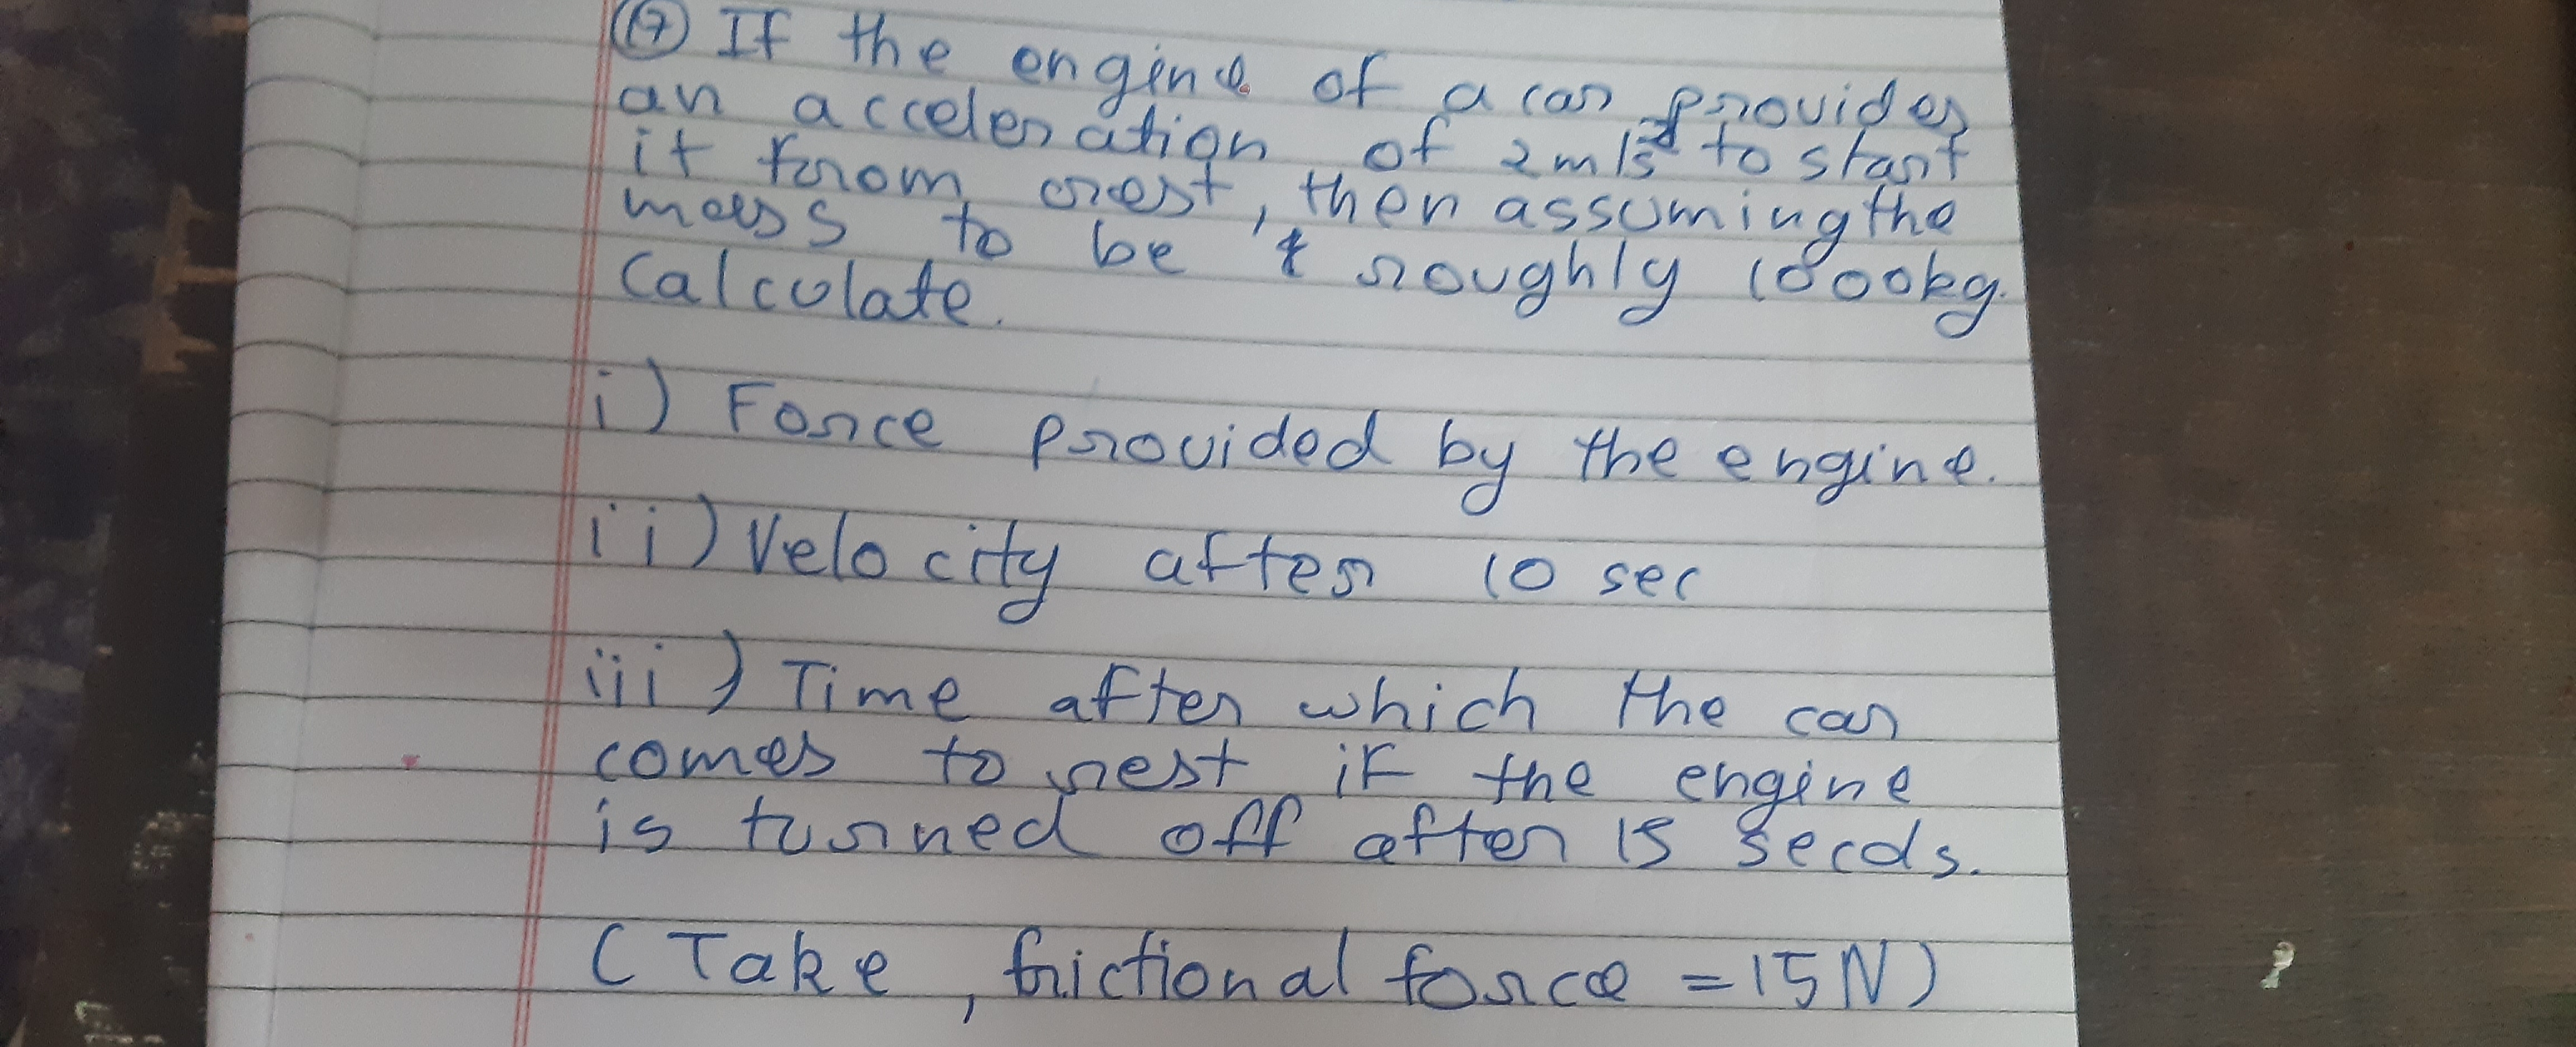 ⑰ If the engine of a car provides
an acceleration of 2m/s² to start
it from rest, then assuming the
mass to be roughly 1000kg.
Calculate.
i) Force provided by the engine.
ii) Velocity after 10 sec
iii) Time after which the car
comes to rest if the engine
is turned off after 15 secds.
(Take, frictional force = 15N)